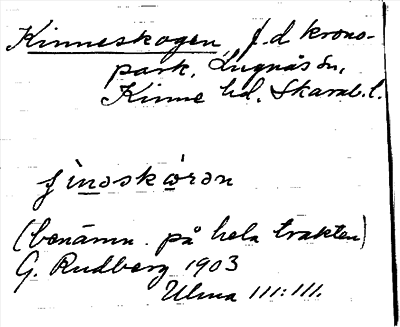 Kinneskogen, f.d krono-
park, Lugnås sn,
Kinne hd. Skarab. l.
(benämn. på hela trakten)
G. Rudberg 1903
Ulma 111:111.